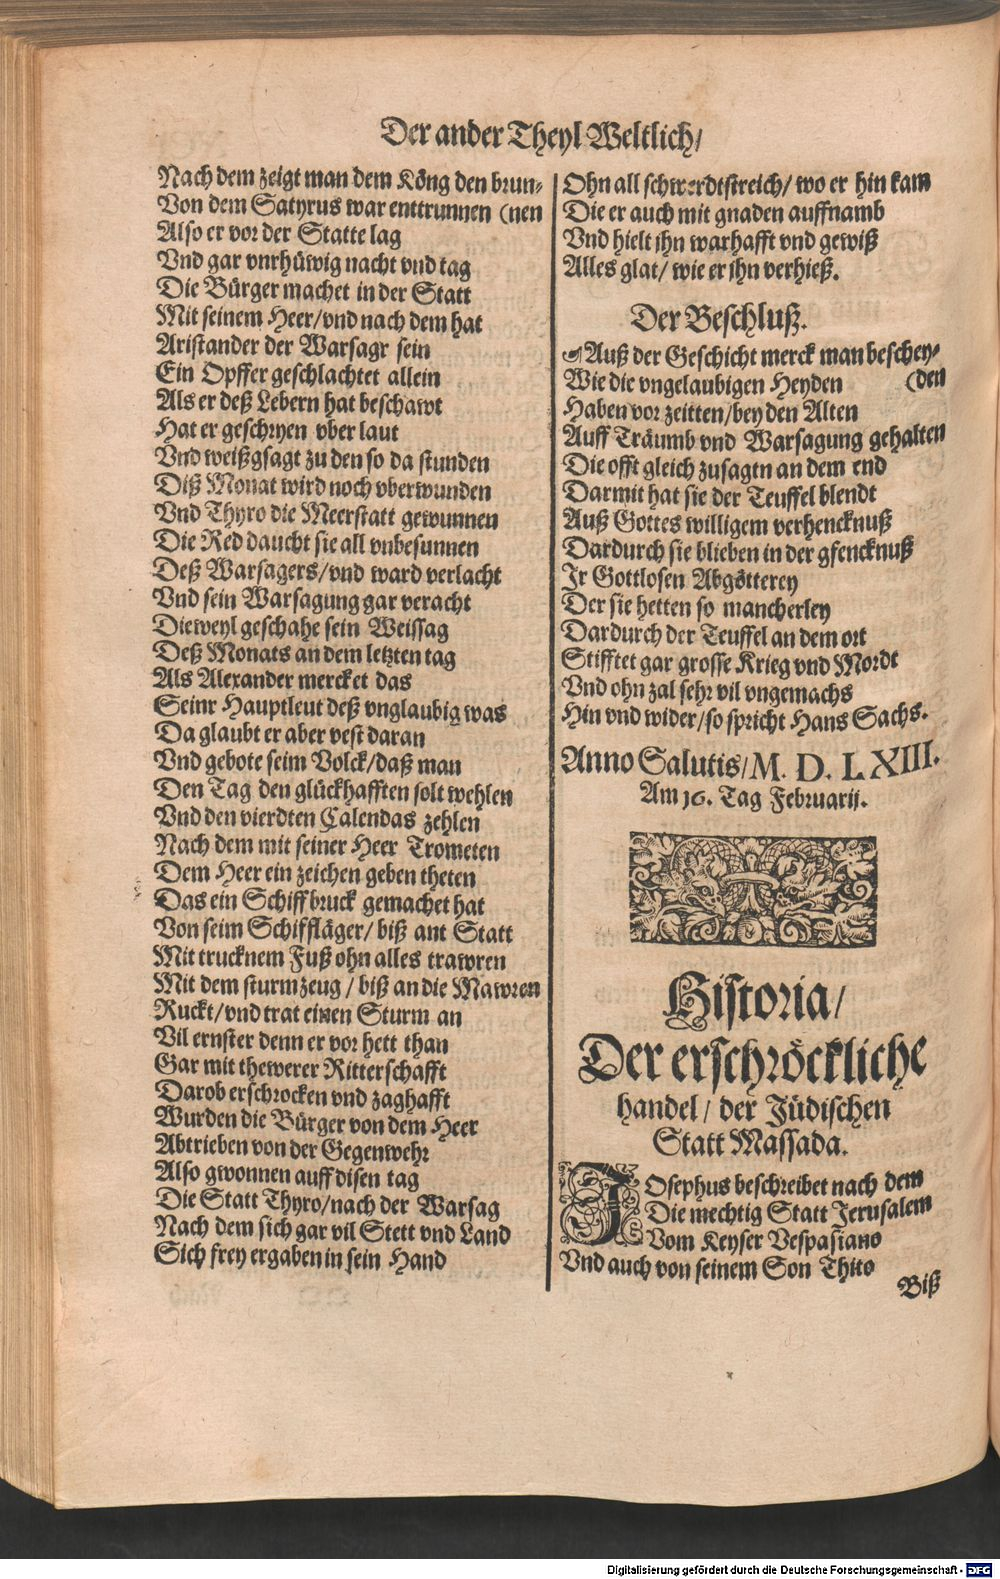 Der ander Theyl Weltlich/
Nach dem zeigt man dem Köng den brun-
Von dem Satyrus war enttrunnen (nen
Also er vor der Statte lag
Vnd gar vnrhüwig nacht vnd tag
Die Bürger machet in der Statt
Mit seinem Heer/vnd nach dem hat
Aristander der Warsagr sein
Ein Opffer geschlachtet allein
Als er deß Lebern hat beschawt
Hat er geschryen vber laut
Vnd weißgsagt zu den so da stunden
Diß Monat wird noch vberwunden
Vnd Thyro die Meerstatt gewunnen
Die Red daucht sie all vnbesunnen
Deß Warsagers/vnd ward verlacht
Vnd sein Warsagung gar veracht
Dieweyl geschahe sein Weissag
Deß Monats an dem letzten tag
Als Alexander mercket das
Seinr Hauptleut deß vnglaubig was
Da glaubt er aber vest daran
Vnd gebote seim Volck/daß man
Den Tag den glückhafften solt wehlen
Vnd den vierdten Calendas zehlen
Nach dem mit seiner Heer Trometen
Dem Heer ein zeichen geben theten
Das ein Schiffbruck gemachet hat
Von seim Schiffläger/ biß ant Statt
Mit trucknem Fuß ohn alles trawren
Mit dem sturmzeug / biß an die Mawren
Ruckt/vnd trat einen Sturm an
Vil ernster denn er vor hett than
Gar mit thewerer Ritterschafft
Darob erschrocken vnd zaghafft
Wurden die Bürger von dem Heer
Abtrieben von der Gegenwehr
Also gwonnen auff disen tag
Die Statt Thyro/nach der Warsag
Nach dem sich gar vil Stett vnd Land
Sich frey ergaben in sein Hand
Ohn all schwerdtstreich/ wo er hin kam
Die er auch mit gnaden auffnamb
Vnd hielt ihn warhafft vnd gewiß
Alles glat/ wie er ihn verhieß.
Der Beschluß.
Auß der Geschicht merck man beschey-
Wie die vngelaubigen Heyden (den
Haben vor zeitten/bey den Alten
Auff Träumb vnd Warsagung gehalten
Die offt gleich zusagtn an dem end
Darmit hat sie der Teuffel blendt
Auß Gottes willigem verhencknuß
Dardurch sie blieben in der gfencknuß
Ir Gottlosen Abgötterey
Der sie hetten so mancherley
Dardurch der Teuffel an dem ort
Stifftet gar grosse Krieg vnd Mordt
Vnd ohn zal sehr vil vngemachs
Hin vnd wider/so spricht Hans Sachs.
Anno Salutis/M. D. LXIII.
Am 16. Tag Februarij.
Historia/
Der erschröckliche
handel/ der Jüdischen
Statt Massada.
JOsephus beschreibet nach dem
Die mechtig Statt Jerusalem
Vom Keyser Vespasiano
Vnd auch von seinem Son Thito
Biß
Digitalisierung gefördert durch die Deutsche Forschungsgemeinschaft - DFG